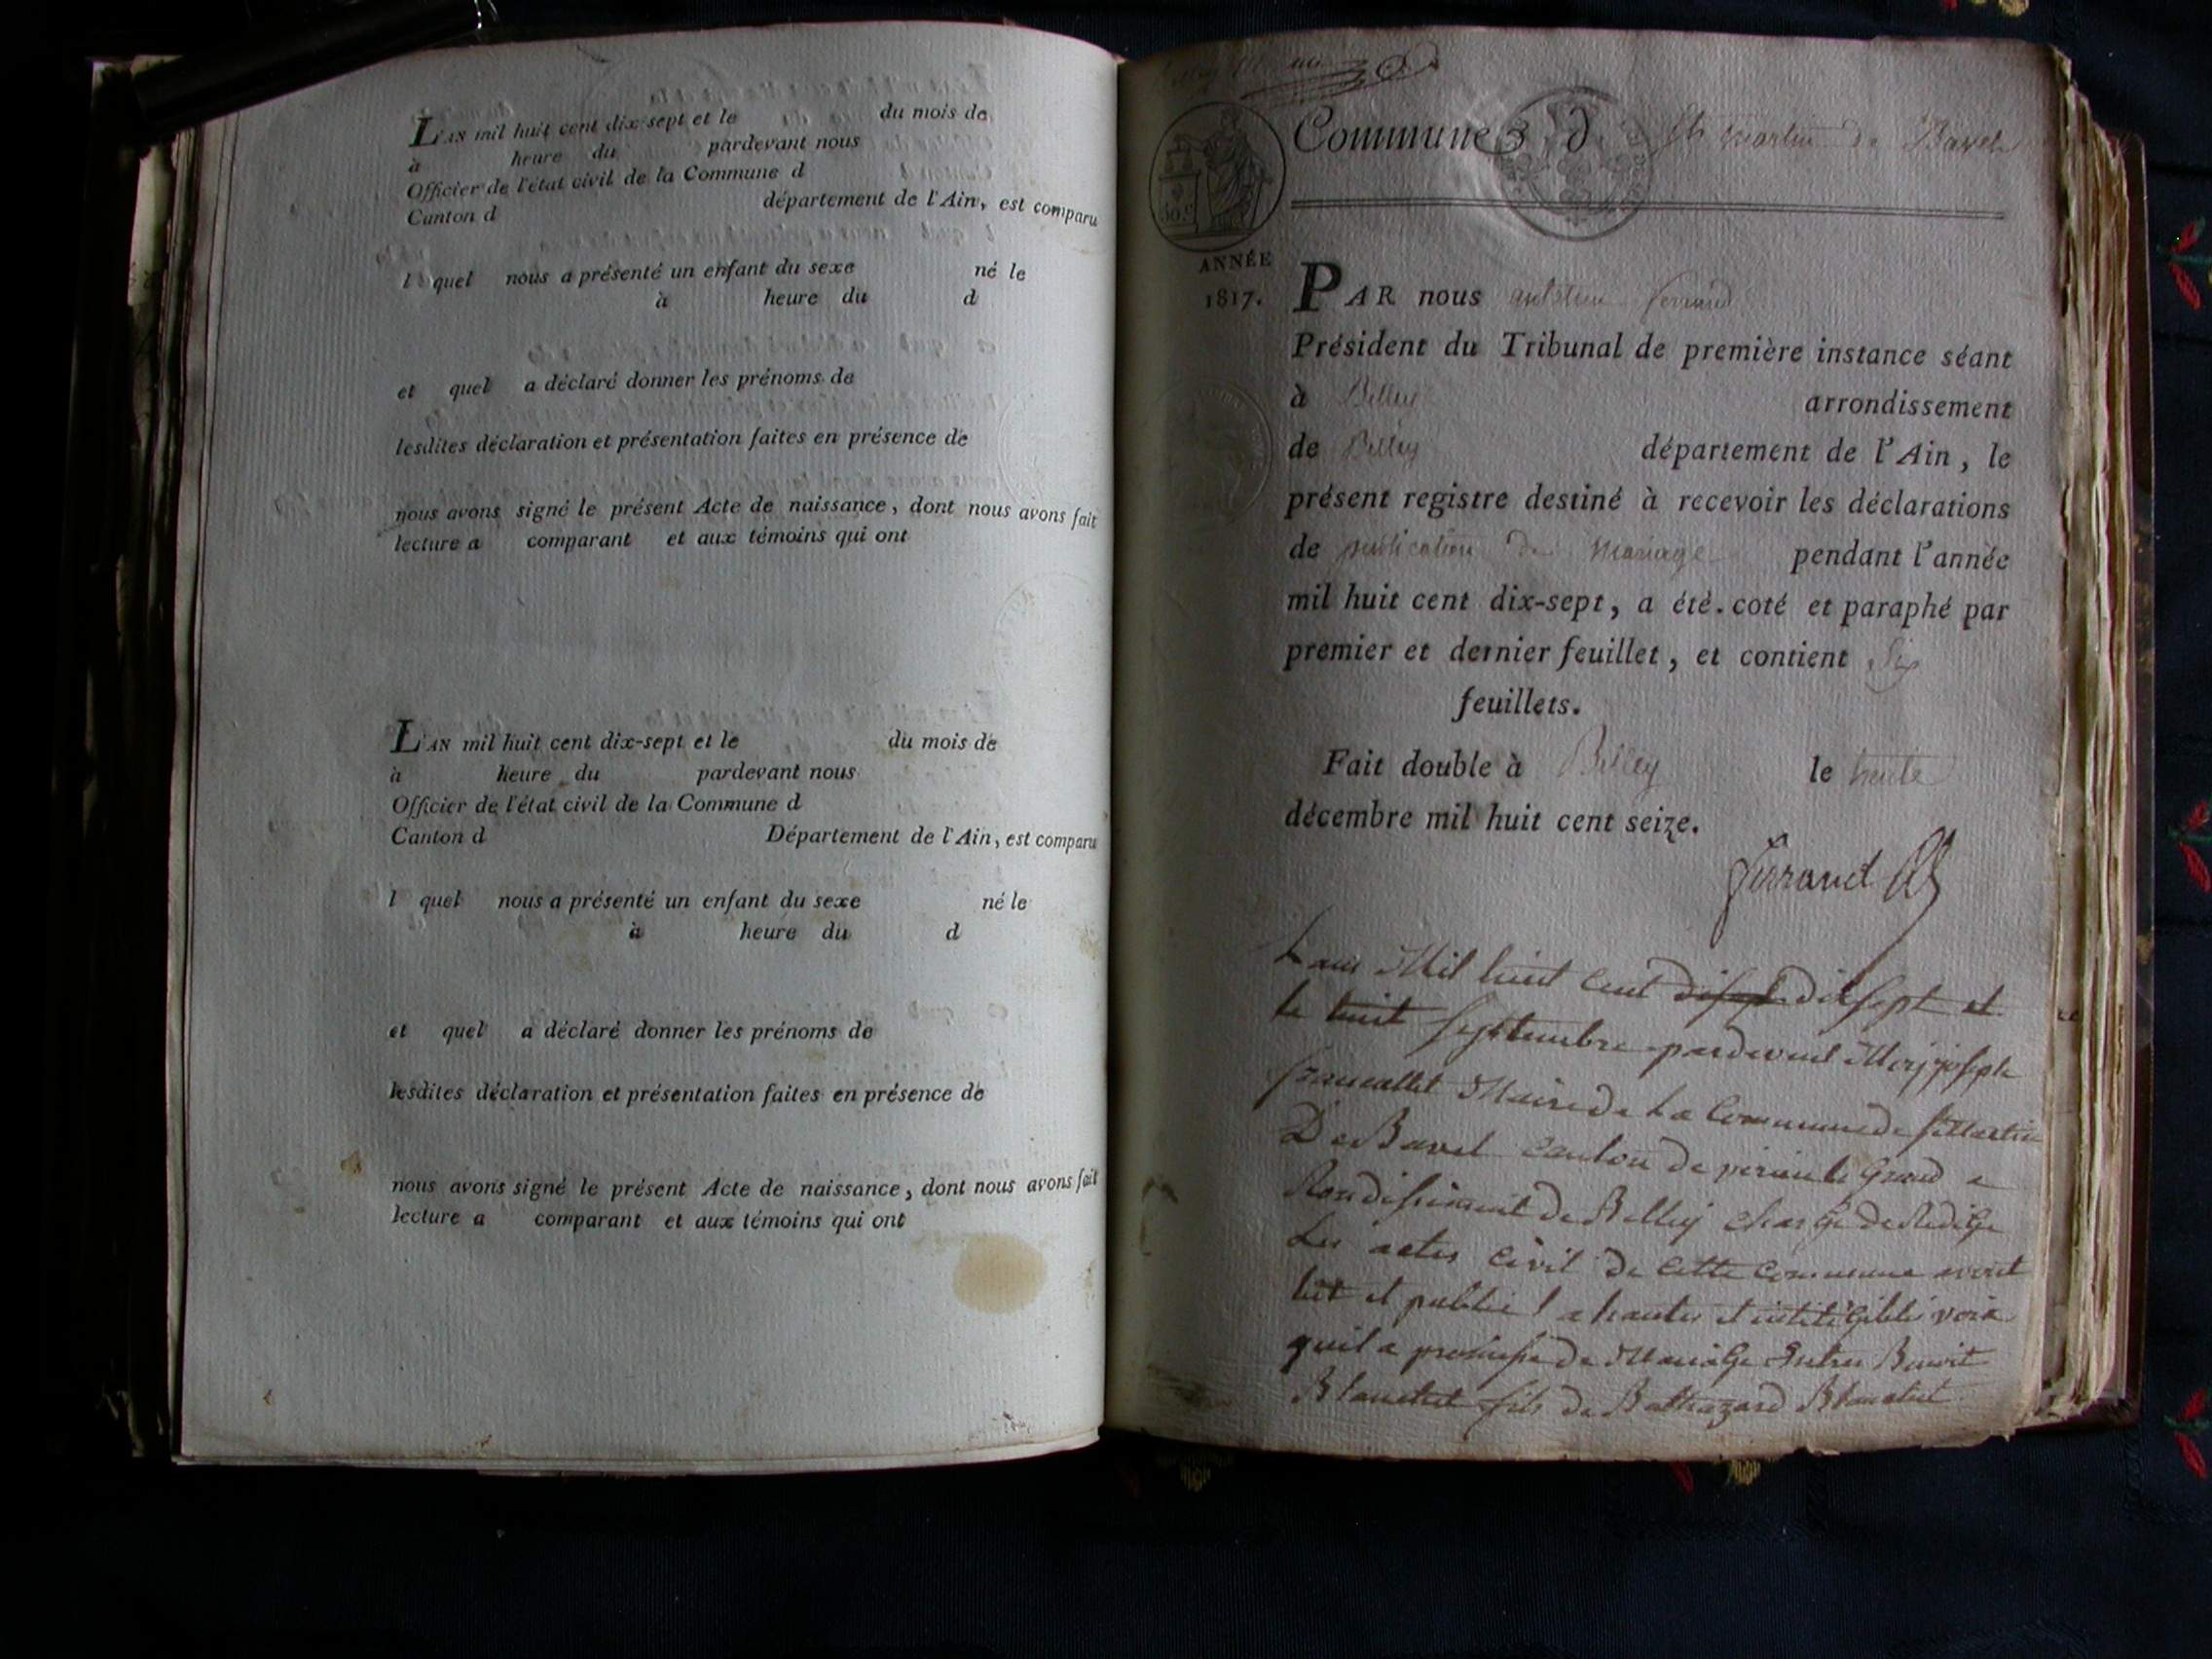 L'AN mil huit cent dix-sept et le du mois de
à heure du pardevant nous
Officier de l'état civil de la Commune d
Canton d département de l'Ain, est comparu
l quel nous a présenté un enfant du sexe né le
à heure du d
et quel a déclaré donner les prénoms de
lesdites déclaration et présentation faites en présence de
nous avons signé le présent Acte de naissance, dont nous avons fait
lecture a comparant et aux témoins qui ont
L'AN mil huit cent dix-sept et le du mois de
à heure du pardevant nous
Officier de l'état civil de la Commune d
Canton d Département de l'Ain, est comparu
l quel nous a présenté un enfant du sexe né le
à heure du d
et quel a déclaré donner les prénoms de
lesdites déclaration et présentation faites en présence de
nous avons signé le présent Acte de naissance, dont nous avons fait
lecture a comparant et aux témoins qui ont
Commune d St martin de Bavel
ANNÉE
1817.
PAR nous ferrand
Président du Tribunal de première instance séant
à Belley arrondissement
de Belley département de l'Ain, le
présent registre destiné à recevoir les déclarations
de publication de mariage pendant l'année
mil huit cent dix-sept, a été coté et paraphé par
premier et dernier feuillet, et contient Six
feuillets.
Fait double à Belley le trente
décembre mil huit cent seize.
ferrand
Lan Mil huit Cent dixsept et
le huit septembre pardevent joseph
Maire de La Commune de St Martin
De Bavel canton de virieu le Grand a
Rondissement de Belley charge de Redige
Les actes civil de cette commune avont
lut et publié a hautes et voix
quil a promesse de Mariage Entre Benoit
Blanchet fils de Balthazard Blanchet